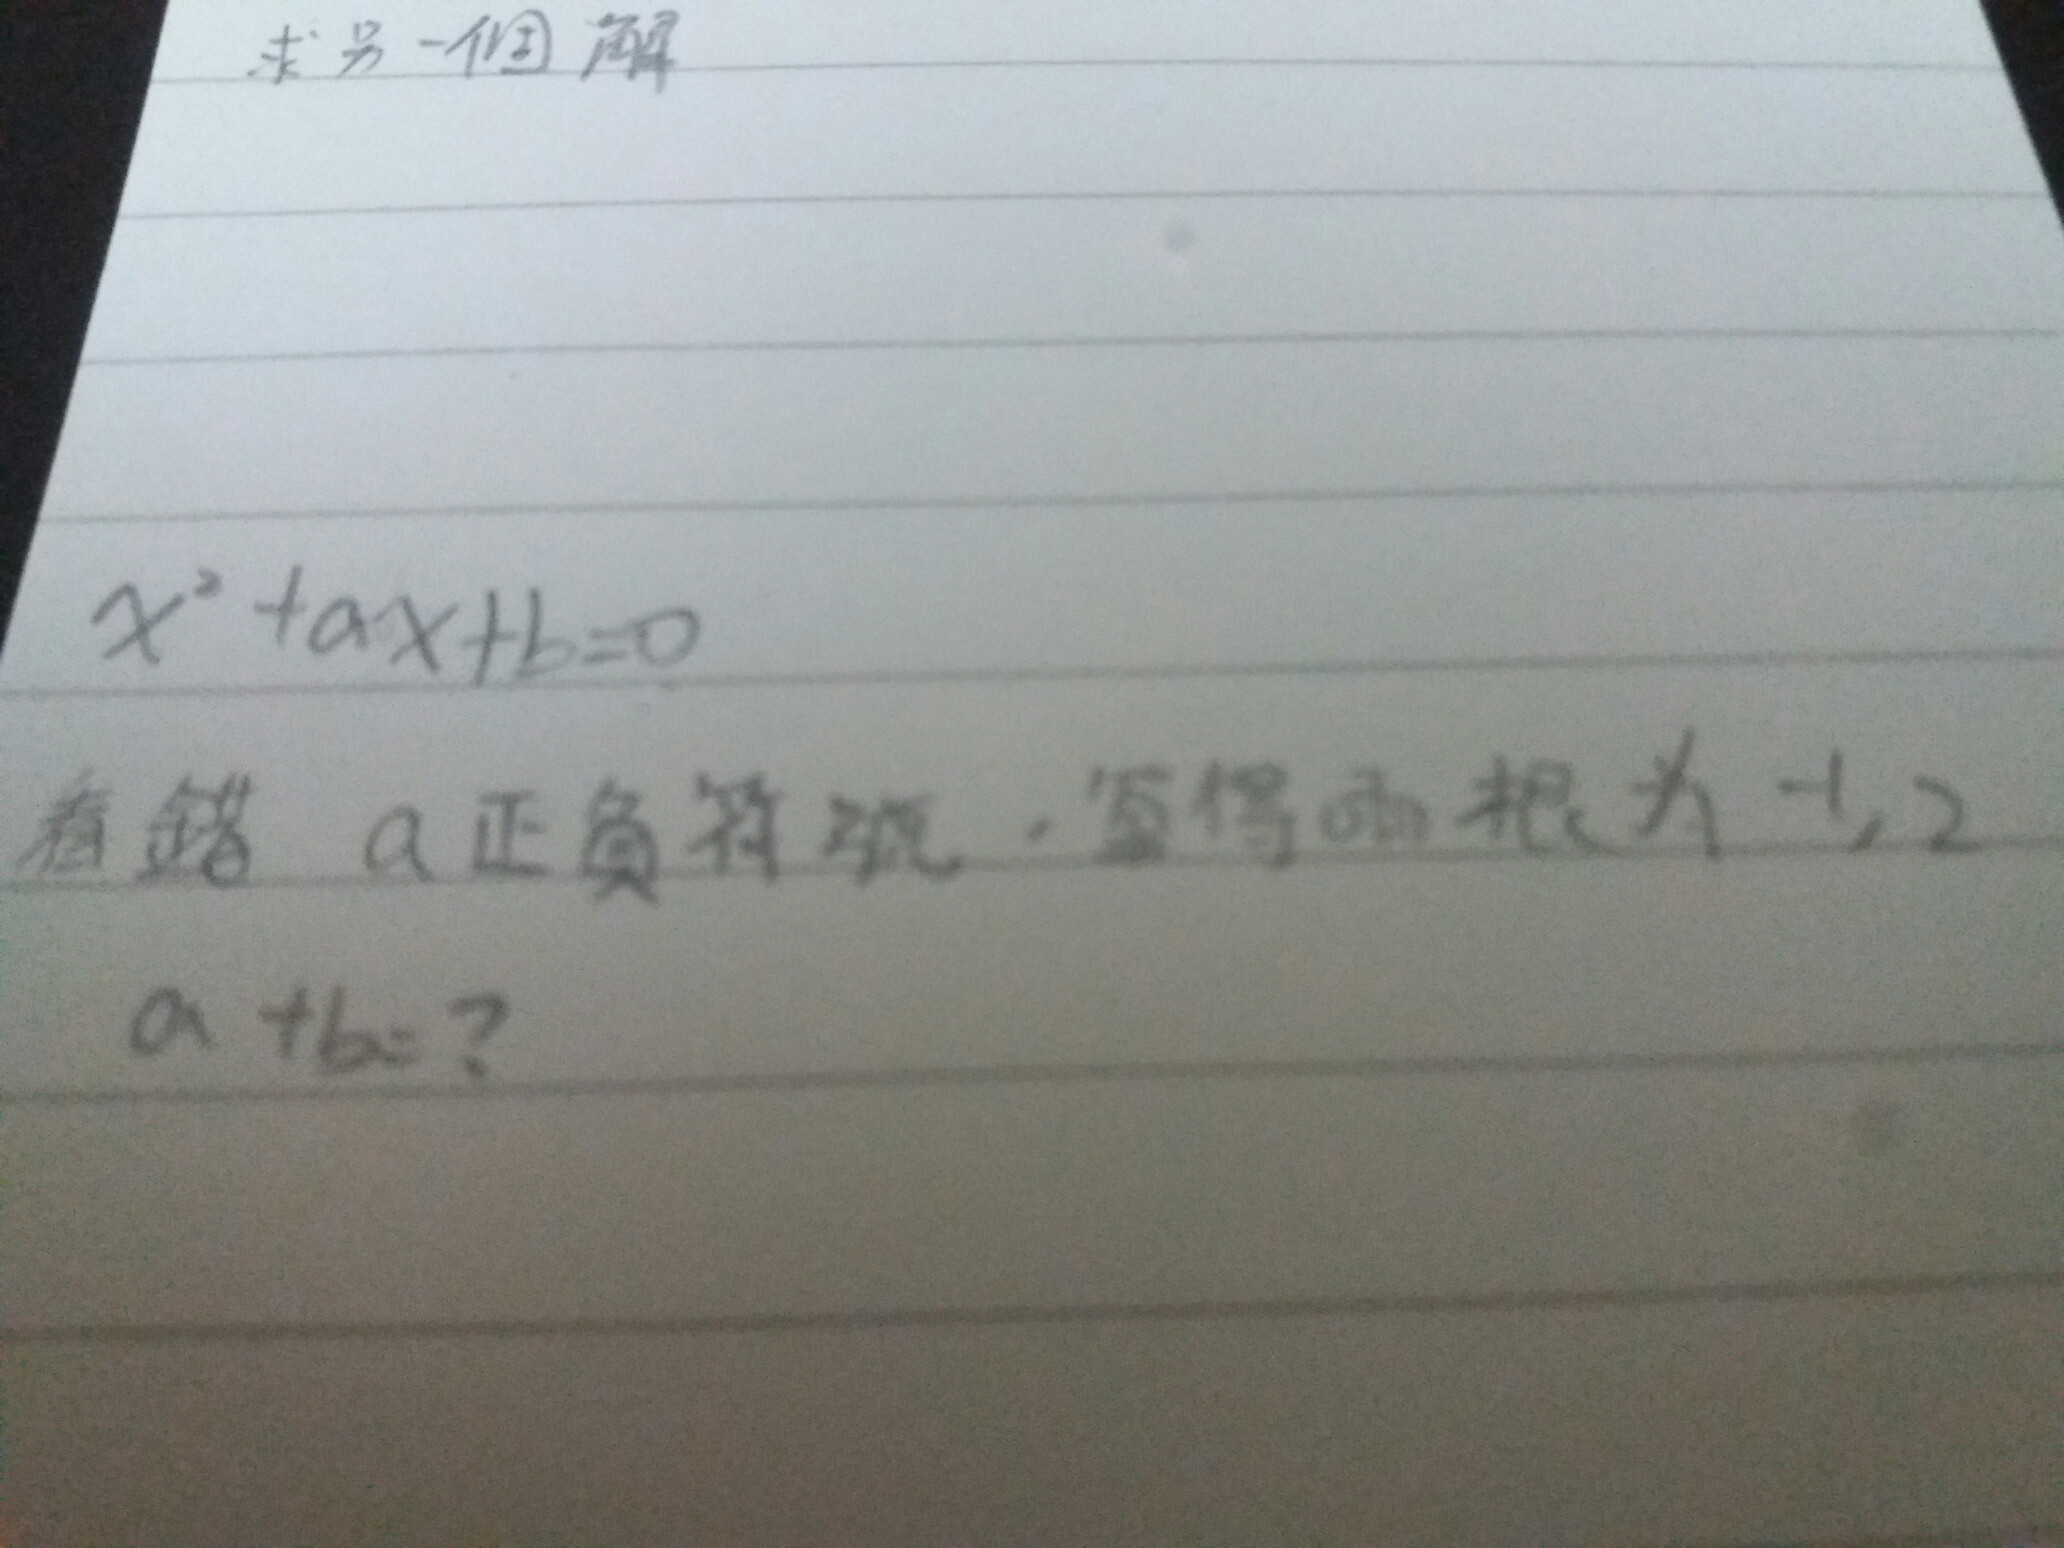 求另一個解
x²+ax+b=0
看錯 a正負符號,寫得兩根为 -1,2
a+b=?